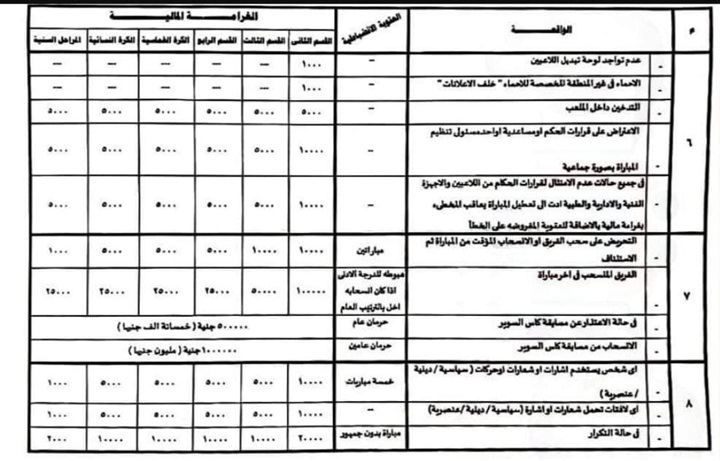 م الواقعة العقوبة الانضباطية الغرامة المالية
القسم الثانى القسم الثالث القسم الرابع الكرة الخماسية الكرة النسائية المراحل السنية
٦
- عدم تواجد لوحة تبديل اللاعبين -- ١٠٠٠ --- --- --- --- ---
- الاحماء فى غير المنطقة المخصصة للاحماء " خلف الاعلانات " -- ١٠٠٠ --- --- --- --- ---
- التدخين داخل الملعب -- ٥٠٠٠ ٥٠٠٠ ٥٠٠٠ ٥٠٠٠ ٥٠٠٠ ٥٠٠٠
- الاعتراض على قرارات الحكم اومساعدية اواحد مسئولى تنظيم
المباراة بصورة جماعية -- ١٠٠٠٠ ٥٠٠٠ ٥٠٠٠ ٥٠٠٠ ٥٠٠٠ ٥٠٠٠
- فى جميع حالات عدم الامتثال لقرارات الحكام من اللاعبين والاجهزة
الفنية والادارية والطبية ادت الى تعطيل المباراة يعاقب المخطىء
بغرامة مالية بالاضافة للعقوبة المفروضه على الخطأ -- ١٠٠٠٠ ٥٠٠٠ ٥٠٠٠ ٥٠٠٠ ٥٠٠٠ ٥٠٠٠
٧
- التحريض على سحب الفريق او الانسحاب المؤقت من المباراة ثم
الاستئناف مباراتين ١٠٠٠٠ ١٠٠٠٠ ٥٠٠٠ ٥٠٠٠ ٥٠٠٠ ١٠٠٠
- الفريق المنسحب فى اخر مباراة هبوطه للدرجة الادنى
اذا كان انسحابه
اخل بالترتيب العام ١٠٠٠٠٠ ٥٠٠٠٠ ٢٥٠٠٠ ٢٥٠٠٠ ٢٥٠٠٠ ٢٥٠٠٠
- فى حالة الاعتذار عن مسابقة كاس السوبر حرمان عام ٥٠٠٠٠٠ جنية ( خمسمائة الف جنيها )
- الانسحاب من مسابقة كاس السوبر حرمان عامين ١٠٠٠٠٠٠ جنية ( مليون جنيها )
٨
- اى شخص يستخدم اشارات او شعارات اوحركات ( سياسية / دينية
/ عنصرية ) خمسة مباريات ١٠٠٠٠ ٥٠٠٠ ٥٠٠٠ ٥٠٠٠ ٥٠٠٠ ١٠٠٠
- اى لافتات تحمل شعارات او اشارة (سياسية / دينية /عنصرية) -- ١٠٠٠٠ ٥٠٠٠ ٥٠٠٠ ٥٠٠٠ ٥٠٠٠ ١٠٠٠
- فى حالة التكرار مباراة بدون جمهور ٢٠٠٠٠ ١٠٠٠٠ ١٠٠٠٠ ١٠٠٠٠ ١٠٠٠٠ ٢٠٠٠